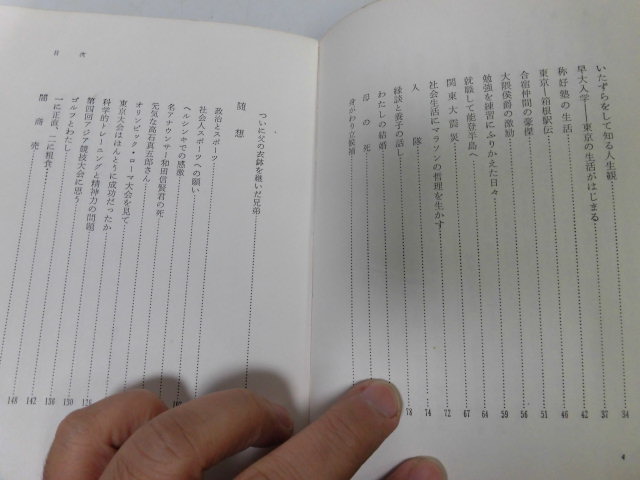 いたずらをして知る人生観 34
早大入学――東京の生活がはじまる 37
称好塾の生活 42
東京―箱根駅伝 46
合宿仲間の豪傑 51
大隈侯爵の激励 56
勉強も練習にふりかえた日々 59
就職して能登半島へ 64
関東大震災 67
社会生活にマラソンの哲理を生かす 72
入隊 74
縁談と養子の話し 78
わたしの結婚
母の死
身がわり立候補
4
ついに父の衣鉢を継いだ兄弟
随想
政治とスポーツ
社会人スポーツへの願い
ヘルシンキでの感激
名アナウンサー和田信賢君の死
元気な高石真五郎さん
オリンピック・ローマ大会を見て
東京大会はほんとうに成功だったか
科学的トレーニングと精神力の問題
第四回アジア競技大会に思う
ゴルフとわたし 130
一に正直、二に粗食 136
闇商売 142
148
目次